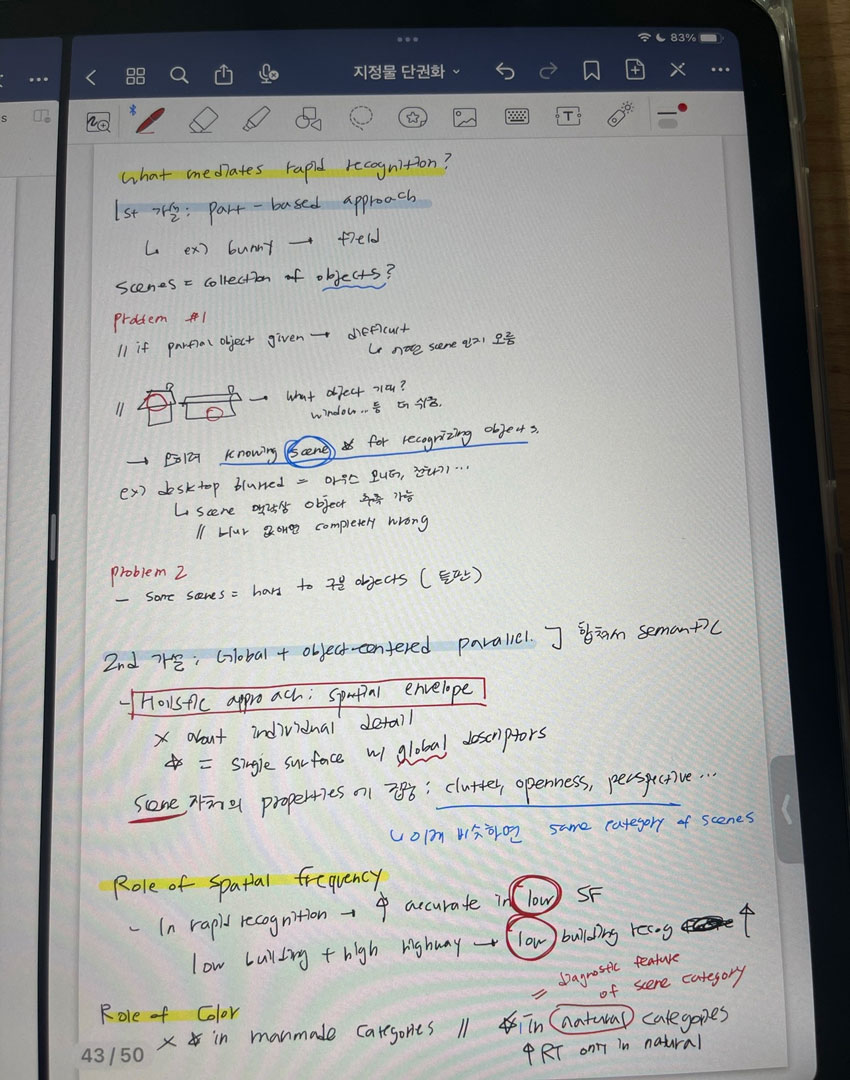 83%
지정물 단권화
s
T
What mediates rapid recognition?
1st 가설: part-based approach
↳ ex) bunny → field
scenes = collection of objects?
Problem #1
// if partial object given → difficult
↳ 어떤 scene 인지 모름
// → what object 기대?
window.. 등 더 쉬움.
→ 오히려 knowing scene ☆ for recognizing objects.
ex) desktop blurred = 마우스 모니터, 전화기...
↳ scene 맥락상 object 추측 가능
// blur 없애면 completely wrong
Problem 2
- some scenes = hard to 구분 objects (들판)
2nd 가설: Global + object-centered parallel. ] 합쳐서 semantic
- Holistic approach: spatial envelope
× about individual detail
☆ = single surface w/ global descriptors
scene 자체의 properties 에 집중: clutter, openness, perspective...
↳ 이게 비슷하면 same category of scenes
Role of Spatial frequency
- In rapid recognition → ↑ accurate in low SF
low building + high highway → low building recog ↑
= diagnostic feature
of scene category
Role of Color
× ☆ in manmade categories // ☆ in natural categories
↑ RT only in natural
43/50